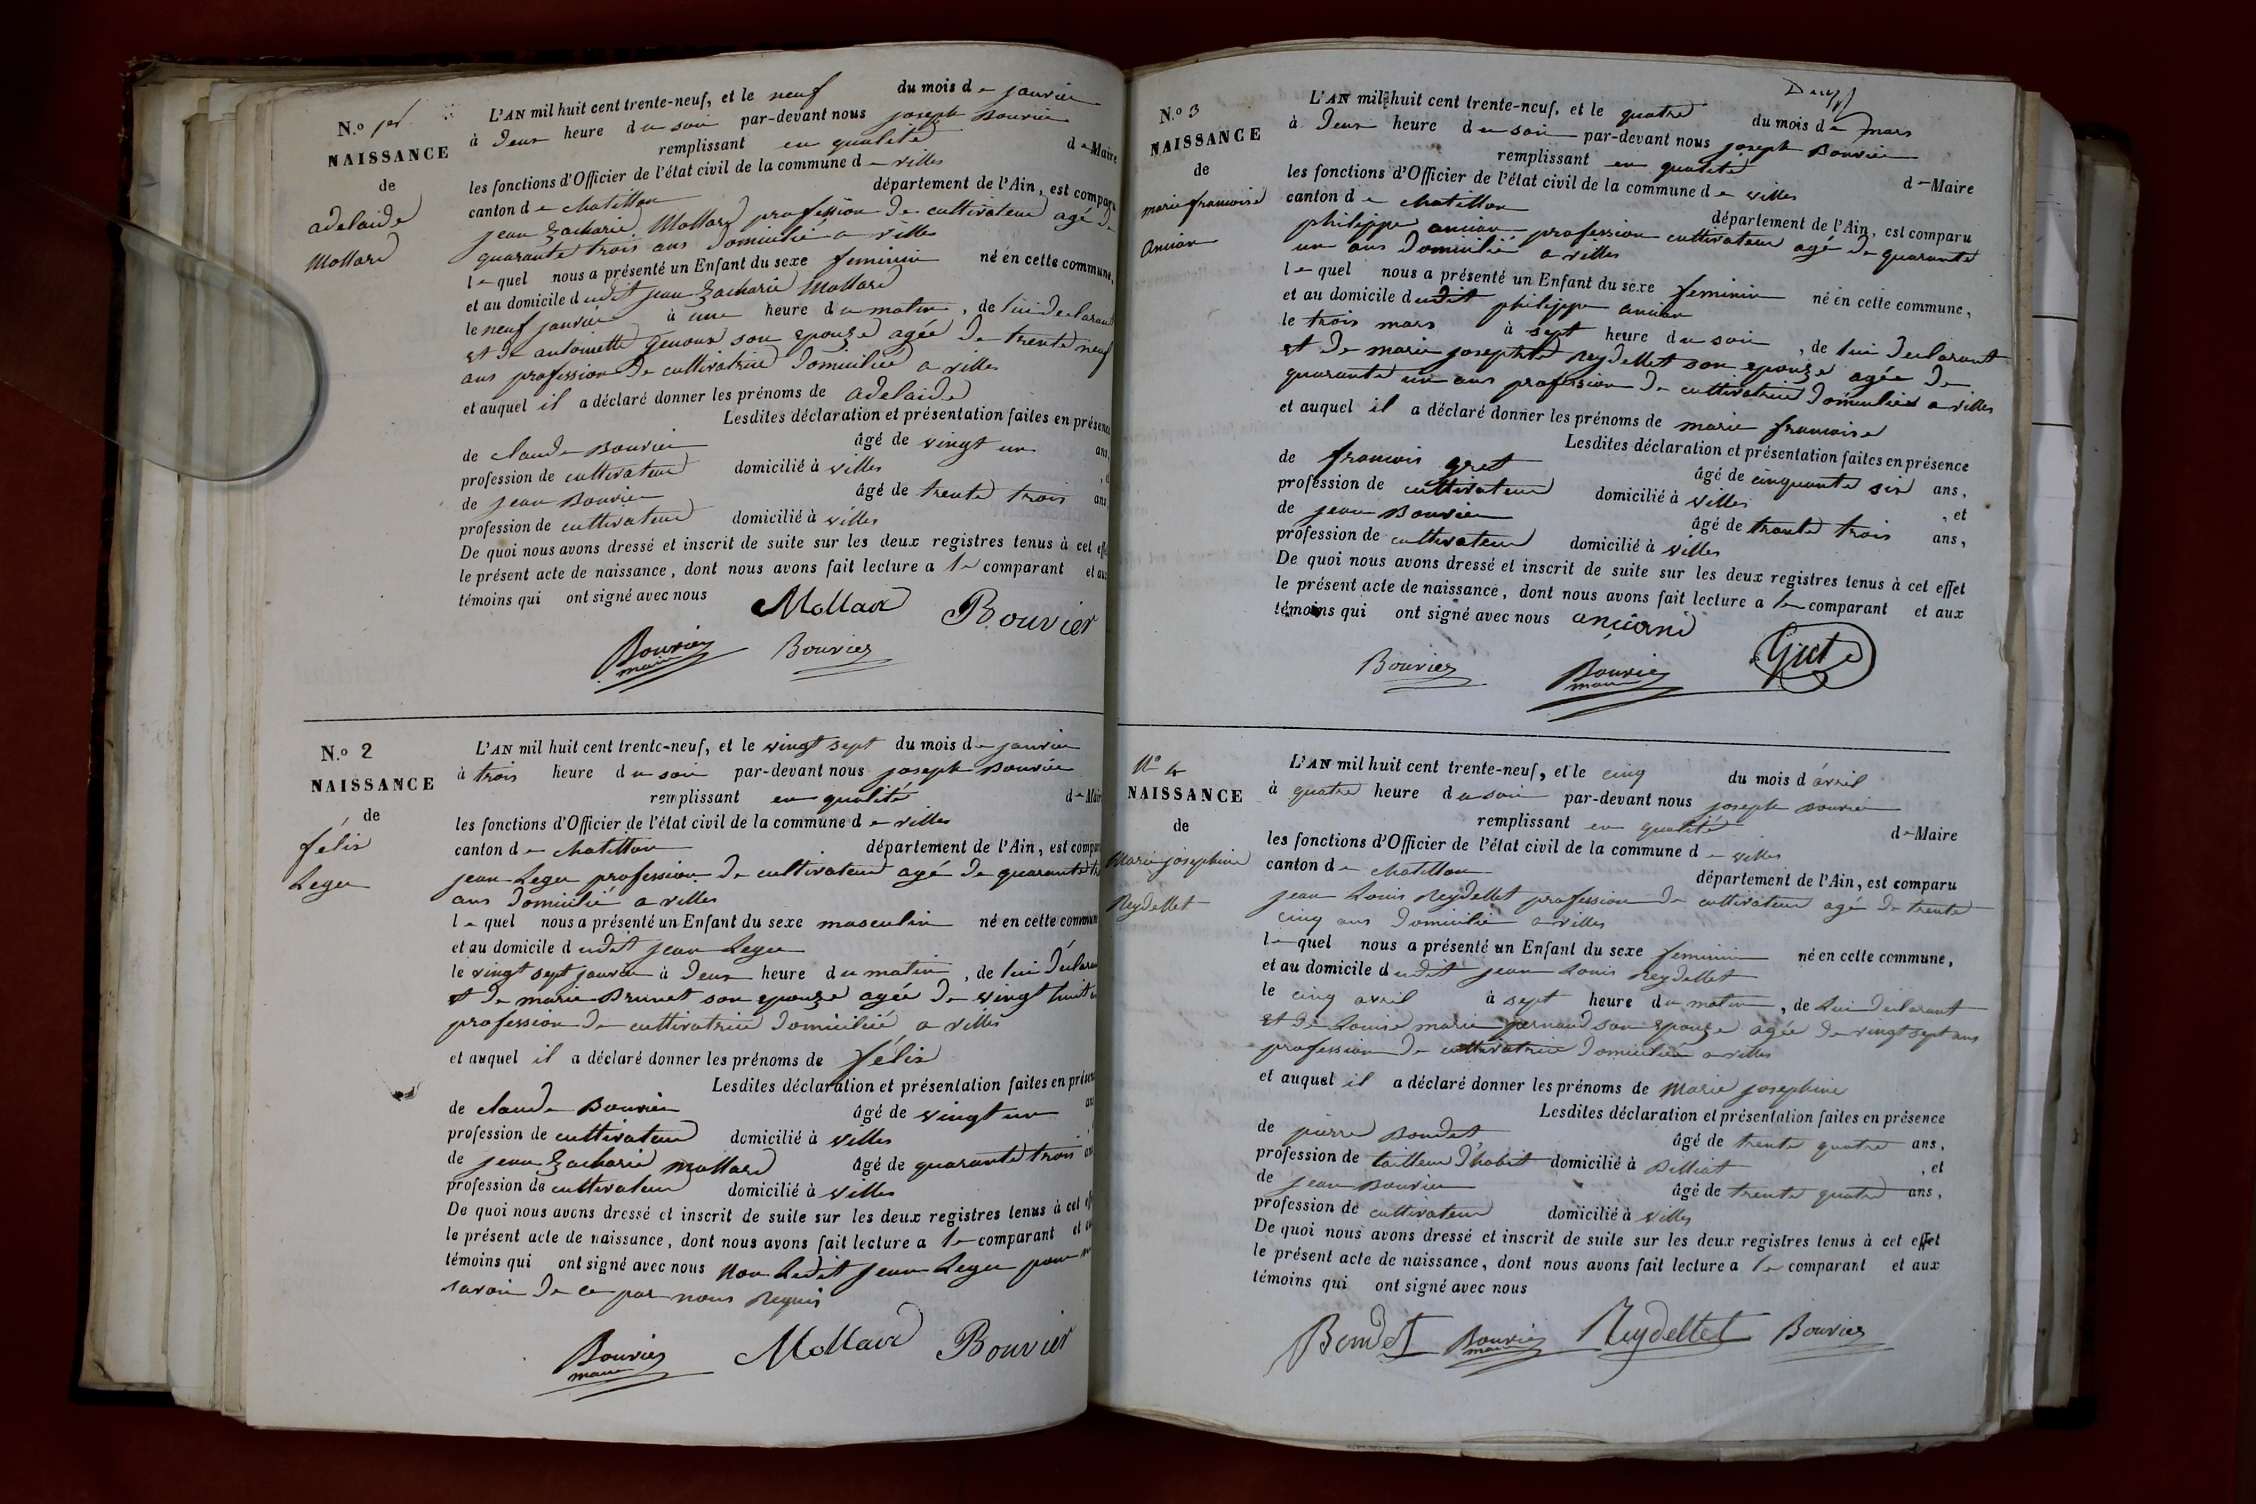 N.o 1er
NAISSANCE
de
adelaide
Mollard
L'AN mil huit cent trente-neuf, et le neuf du mois de janvier
à Deux heure du soir par-devant nous joseph Bouvier
remplissant en qualité de Maire
les fonctions d'Officier de l'état civil de la commune de villes
canton de chatillon département de l'Ain, est comparu
jean Zacharie Mollard profession de cultivateur agé de
quarante trois ans Domicilié a villes
lequel nous a présenté un Enfant du sexe feminin né en cette commune,
et au domicile dudit jean Zacharie Mollard
le neuf janvier à une heure du matin, de lui declarant
et de antoinette genoux son epouze agée de trente neuf
ans profession de cultivatrice Domicilié a villes
et auquel il a déclaré donner les prénoms de adelaide
Lesdites déclaration et présentation faites en présence
de claude Bouvier âgé de vingt un ans,
profession de cultivateur domicilié à villes
de jean Bouvier âgé de trente trois ans
profession de cultivateur domicilié à villes
De quoi nous avons dressé et inscrit de suite sur les deux registres tenus à cet effe
le présent acte de naissance, dont nous avons fait lecture a le comparant et aux
témoins qui ont signé avec nous Mollard Bouvier
Bouvier maire Bouvier
N.o 2
NAISSANCE
de
félix
Leger
L'AN mil huit cent trente-neuf, et le vingt sept du mois de janvier
à trois heure du soir par-devant nous joseph Bouvier
remplissant en qualité de Mair
les fonctions d'Officier de l'état civil de la commune de villes
canton de chatillon département de l'Ain, est compar
jean Leger profession de cultivateur agé de quarante
ans Domicilié a villes
lequel nous a présenté un Enfant du sexe masculin né en cette commune
et au domicile dudit jean Leger
le vingt sept janvier à Deux heure du matin, de lui Déclara
et de marie Brunet son epouze agée de vingt huit
profession de cultivatrice Domicilié a villes
et auquel il a déclaré donner les prénoms de félix
Lesdites déclaration et présentation faites en présen
de claude Bouvier âgé de vingt un an
profession de cultivateur domicilié à villes
de jean Zacharie mollard âgé de quarante trois an
profession de cultivateur domicilié à villes
De quoi nous avons dressé et inscrit de suite sur les deux registres tenus à cet eff
le présent acte de naissance, dont nous avons fait lecture a le comparant et
témoins qui ont signé avec nous Non Ledit jean Leger pour
savoir de ce par nous Requis
Bouvier maire Mollard Bouvier
N.o 3
NAISSANCE
de
marie francoise
Ancian
L'AN mil huit cent trente-neuf, et le quatre du mois de mars
à Deux heure du soir par-devant nous joseph Bouvier
remplissant en qualité de Maire
les fonctions d'Officier de l'état civil de la commune de villes
canton de chatillon département de l'Ain, est comparu
philippe ancian profession cultivateur agé de quarante
un ans Domicilié a villes
lequel nous a présenté un Enfant du sexe feminin né en cette commune,
et au domicile dudit philippe ancian
le trois mars à sept heure du soir, de lui Declarant
et de marie josephte Reydellet son epouze agée de
quarante un ans profession de cultivatrice Domicilié a villes
et auquel il a déclaré donner les prénoms de marie francoise
Lesdites déclaration et présentation faites en présence
de francois gret âgé de cinquante six ans,
profession de cultivateur domicilié à villes, et
de jean Bouvier âgé de trente trois ans,
profession de cultivateur domicilié à villes
De quoi nous avons dressé et inscrit de suite sur les deux registres tenus à cet effet
le présent acte de naissance, dont nous avons fait lecture a le comparant et aux
témoins qui ont signé avec nous
Bouvier Bouvier maire
N.o 4
NAISSANCE
de
Marie josephine
Reydellet
L'AN mil huit cent trente-neuf, et le cinq du mois d'avril
à quatre heure du soir par-devant nous joseph Bouvier
remplissant en qualité de Maire
les fonctions d'Officier de l'état civil de la commune de villes
canton de chatillon département de l'Ain, est comparu
jean Louis Reydellet profession de cultivateur agé de trente
cinq ans Domicilié a villes
lequel nous a présenté un Enfant du sexe feminin né en cette commune,
et au domicile dudit jean Louis Reydellet
le cinq avril à sept heure du matin, de Lui Declarant
et de Louise marie son epouze agée de vingt sept ans
profession de cultivatrice Domicilié a villes
et auquel il a déclaré donner les prénoms de Marie josephine
Lesdites déclaration et présentation faites en présence
de pierre Boudet âgé de trente quatre ans,
profession de tailleur d'habit domicilié à Billiat, et
de jean Bouvier âgé de trente quatre ans,
profession de cultivateur domicilié à villes
De quoi nous avons dressé et inscrit de suite sur les deux registres tenus à cet effet
le présent acte de naissance, dont nous avons fait lecture a le comparant et aux
témoins qui ont signé avec nous
Boudet Bouvier maire Reydellet Bouvier